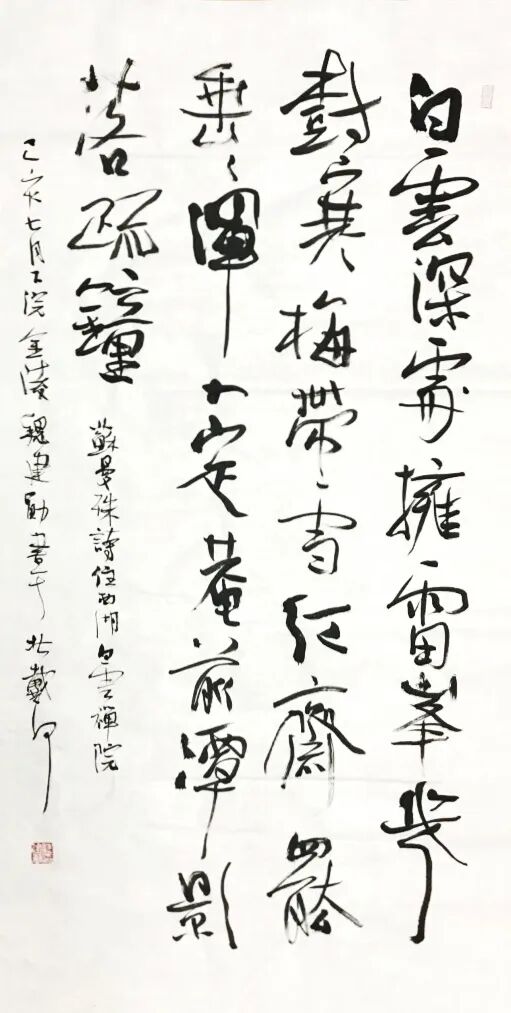 白雲深處擁雷峯幾
樹寒梅帶雪紅齋罷
垂〻渾入定菴前潭影
落疏鐘
蘇曼殊詩住西湖白雲禪院
己亥七月下浣金陵魏建勛書于北戴河